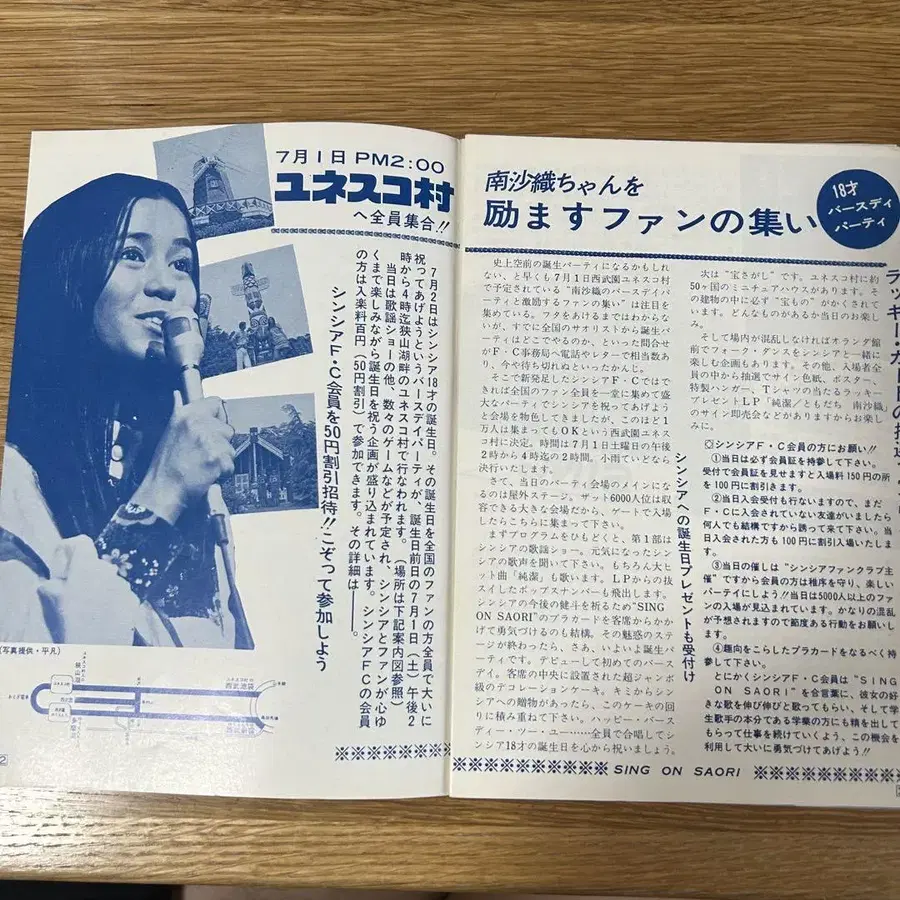 7月1日 PM2:00
ユネスコ村
へ全員集合!!
7月2日はシンシア18才の誕生日。その誕生日を全国のファンの方全員で大いに
祝ってあげようというバースデイパーティが、誕生日前日の7月1日(土)午後2
時から4時迄狭山湖畔のユネスコ村で行なわれます。(場所は下記案内図参照)
当日は歌謡ショーの他、数々のゲームなどが予定され、シンシアとファンが心ゆ
くまで楽しみながら誕生日を祝う企画が盛り込まれています。シンシアF・Cの会員
の方は入楽料百円(50円割引)で参加できます。その詳細は——。
シンシアF・C会員を50円割引招待!!こぞって参加しよう
(写真提供・平凡)
西武池袋
2
南沙織ちゃんを
励ますファンの集い
18才
バースデイ
パーティ
史上空前の誕生パーティになるかもしれ
ない、と早くも7月1日西武園ユネスコ村
で予定されている“南沙織のバースデイパ
ーティと激励するファンの集い”は注目を
集めている。フタをあけるまではわからな
いが、すでに全国のサオリストから誕生パ
ーティはどこでやるのか、といった問合せ
がF・C事務局へ電話やレターで相当数あ
り、今や待ち切れぬといったかんじ。
そこで新発足したシンシアF・Cではで
きれば全国のファン全員を一堂に集めて盛
大なパーティでシンシアを祝ってあげよう
と会場を物色してきましたが、このほど1
万人は集まってもOKという西武園ユネス
コ村に決定。時間は7月1日土曜日の午後
2時から4時迄の2時間。小雨ていどなら
決行いたします。
さて、当日のパーティ会場のメインにな
るのは屋外ステージ。ザット6000人位は収
容できる大きな会場だから、ゲートで入場
したらこちらに集まって下さい。
まずプログラムをひもどくと、第1部は
シンシアの歌謡ショー。元気になったシン
シアの歌声を聞いて下さい。もちろん大ヒ
ット曲「純潔」も歌います。LPからの抜
スイしたポップスナンバーも飛出します。
シンシアの今後の健斗を祈るため“SING
ON SAORI”のプラカードを客席からか
げて勇気づけるのも結構。その魅惑のステー
ジが終わったら、さあ、いよいよ誕生パー
ティです。デビューして初めてのバース
デイ。客席の中央に設置された超ジャンボ
級のデコレーションケーキ。キミからシン
シアへの贈物があったら、このケーキの回
りに積み重ねて下さい。ハッピー・バース
ディー・ツー・ユー……全員で合唱してシ
ンシア18才の誕生日を心から祝いましょう。
シンシアへの誕生日プレゼントも受付け
次は“宝さがし”です。ユネスコ村に約
50ヶ国のミニチュアハウスがあります。そ
の建物の中に必ず“宝もの”がかくされて
います。どんなものがあるか当日のお楽し
み。
そして場内が混乱しなければオランダ館
前でフォーク・ダンスをシンシアと一緒に
楽しむ企画もあります。その他、入場者全
員の中から抽選でサイン色紙、ポスター、
特製ハンガー、Tシャツの当たるラッキー
プレゼントLP「純潔/ともだち 南沙織」
のサイン即売会などがありますからお楽し
みに。
◎シンシアF・C会員の方にお願い!!
①当日は必ず会員証を持参して下さい。
受付で会員証を見せますと入場料150円の所
を100円に割引きます。
②当日入会受付も行ないますので、まだ
F・Cに入会されていない友達がいましたら
何人でも結構ですから誘って来て下さい。当
日入会された方も100円に割引入場いたしま
す。
③当日の催しは“シンシアファンクラブ主
催”ですから会員の方は秩序を守り、楽しい
パーティにしよう!!当日は5000人以上のファ
ンの入場が見込まれています。かなりの混乱
が予想されますので節度ある行動をお願いし
ます。
④趣向をこらしたプラカードをなるべく持
参して下さい。
とにかくシンシアF・C会員は“SING
ON SAORI”を合言葉に、彼女の好
きな歌を伸び伸びと歌ってもらい、そして学
生歌手の本分である学業の方にも精を出して
もらって仕事を続けていくよう、この機会を
利用して大いに勇気づけてあげよう!!
SING ON SAORI